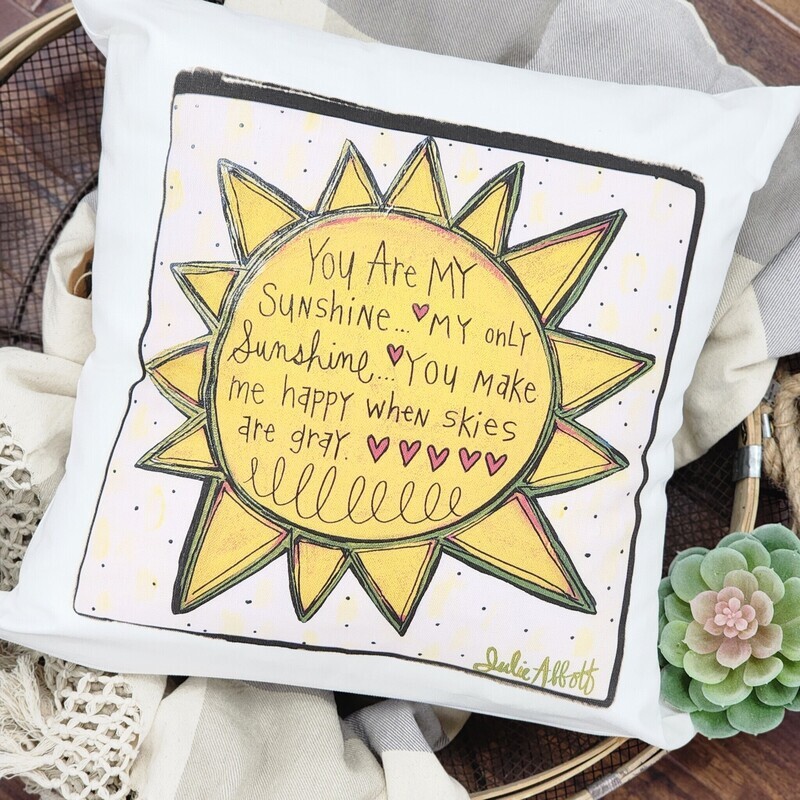 You Are MY
Sunshine... ♥ MY onLY
Sunshine... ♥ You make
me happy when skies
are gray. ♥ ♥ ♥ ♥ ♥
Julie Abbott